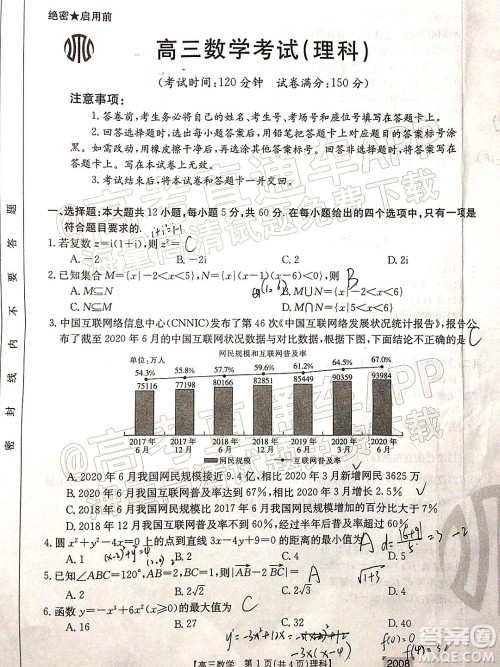 绝密★启用前
高三数学考试(理科)
(考试时间:120分钟 试卷满分:150分)
注意事项:
1.答卷前,考生务必将自己的姓名、考生号、考场号和座位号填写在答题卡上。
2.回答选择题时,选出每小题答案后,用铅笔把答题卡上对应题目的答案标号涂
黑。如需改动,用橡皮擦干净后,再选涂其他答案标号。回答非选择题时,将答案写在
答题卡上。写在本试卷上无效。
3.考试结束后,将本试卷和答题卡一并交回。
一、选择题:本大题共12小题,每小题5分,共60分。在每小题给出的四个选项中,只有一项是
符合题目要求的.
1.若复数z=i(1+i),则z²= C
A.-2 B.2 C.-2i D.2i
2.已知集合M={x|-2<x<5},N={x|(x-1)(x-6)<0},则 B
A.M⊆N B.M∩N={x|1<x<5}
C.N⊆M D.M∩N={x|-2<x<6}
3.中国互联网络信息中心(CNNIC)发布了第46次《中国互联网络发展状况统计报告》,报告公
布了截至2020年6月的中国互联网状况数据与对比数据,根据下图,下面结论不正确的是 C
网民规模和互联网普及率
单位:万人
54.3% 55.8% 57.7% 59.6% 61.2% 64.5% 67.0%
75116 77198 80166 82851 85449 90359 93984
2017年6月 2017年12月 2018年6月 2018年12月 2019年6月 2020年3月 2020年6月
网民规模 互联网普及率
A.2020年6月我国网民规模接近9.4亿,相比2020年3月新增网民3625万
B.2020年6月我国互联网普及率达到67%,相比2020年3月增长2.5%
C.2018年12月我国网民规模相比2017年6月我国网民规模增加的百分比大于7%
D.2018年12月我国互联网普及率不到60%,经过半年后普及率超过60%
4.圆x²+y²-4x=0上的点到直线3x-4y+9=0的距离的最小值为 A
A.1 B.2 C.4 D.5
5.已知∠ABC=120°,AB=2,BC=1,则|AB-2BC|= A
A.2 B.2√2 C.4 D.2√3
6.函数y=-x³+6x²(x≥0)的最大值为 C
A.16 B.27 C.32 D.40
【高三数学 第1页(共4页)理科】
2008
密 封 线 内 不 要 答 题
@高考直通车APP
海量高清试题免费下载
答案圈